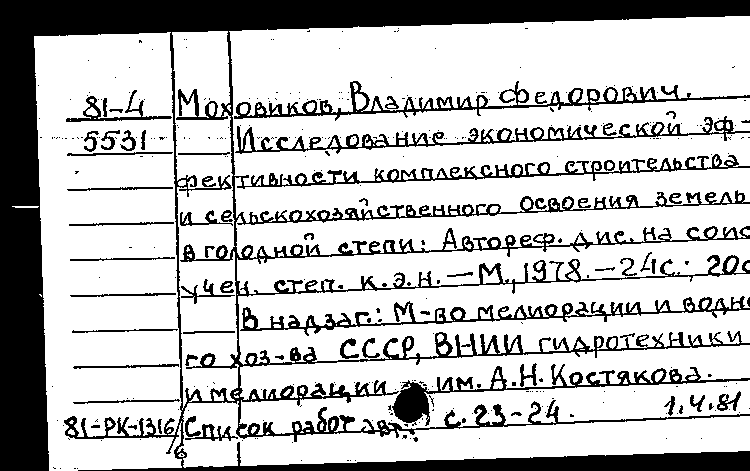 81-4 Моховиков, Владимир Федорович.
5531 Исследование экономической эф-
фективности комплексного строительства
и сельскохозяйственного освоения земель
в голодной степи: Автореф. дис. на соис
учен. степ. к.э.н. — М., 1978. — 24с.; 20с
В надзаг.: М-во мелиорации и водно
го хоз-ва СССР, ВНИИ гидротехники
и мелиорации им. А.Н. Костякова.
81-РК-1316 Список работ авт.: с. 23-24. 1.4.81
6